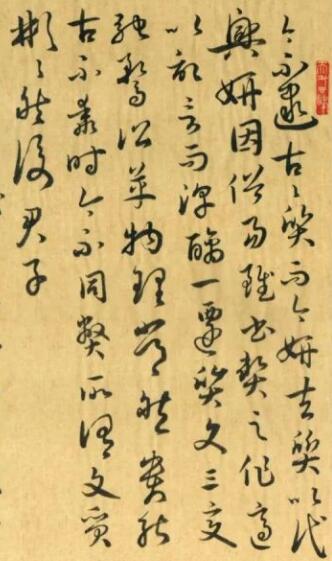 今不逮古々質而今妍夫質以代
興妍因俗易雖書契之作適
以記言而淳醨一遷質文三變
馳騖沿革物理常然貴能
古不乖時今不同弊所謂文質
彬々然後君子